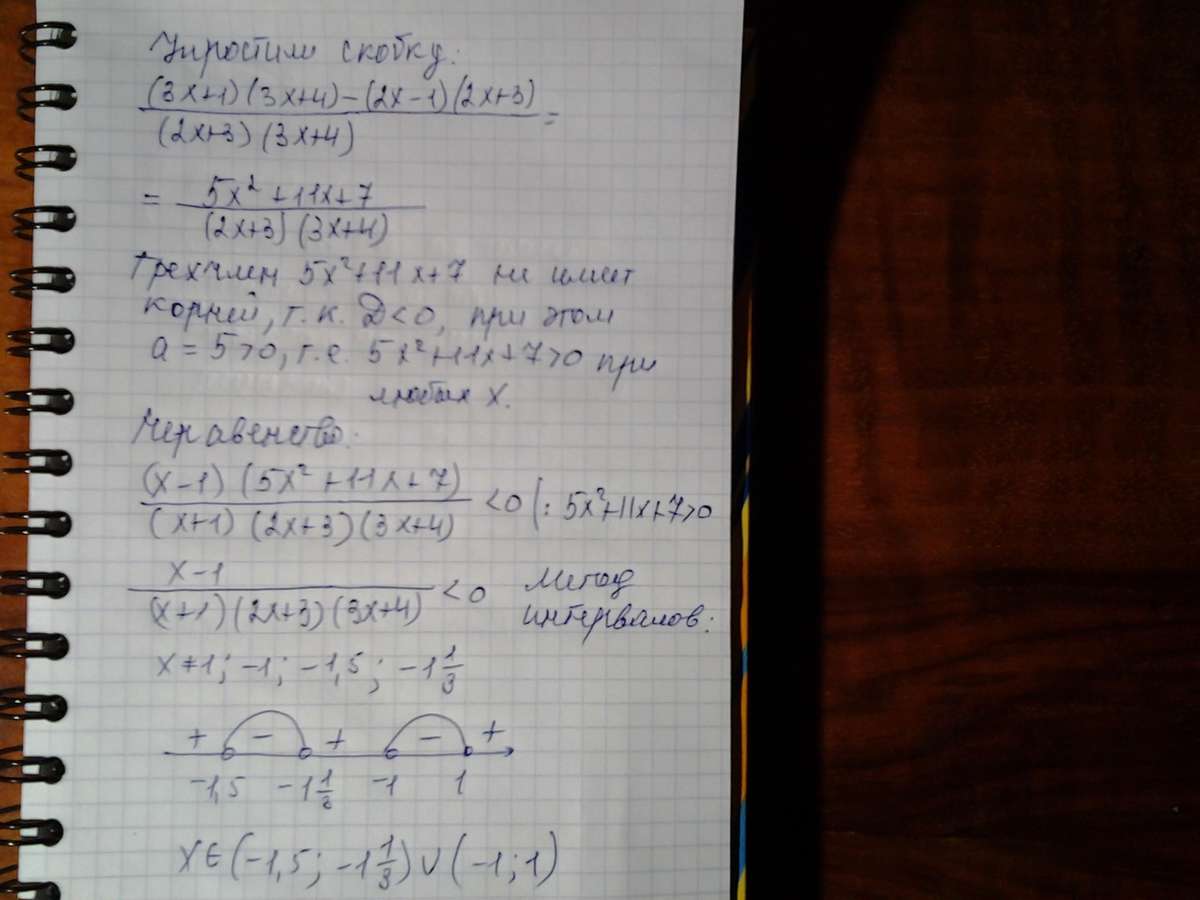 Упростим скобку:
(3x+1)(3x+4)-(2x-1)(2x+3)
(2x+3)(3x+4) =
= 5x² +11x+7
(2x+3)(3x+4)
Трехчлен 5x²+11x+7 не имеет
корней, т.к. D<0, при этом
a = 5>0, т.е. 5x²+11x+7>0 при
любых x.
Неравенство:
(x-1)(5x²+11x+7)
(x+1)(2x+3)(3x+4) <0 |: 5x²+11x+7>0
x-1
(x+1)(2x+3)(3x+4) <0 Метод
интервалов:
x≠1; -1; -1,5; -1 1/3
+ - + - +
-1,5 -1 1/3 -1 1
x∈(-1,5; -1 1/3)∪(-1;1)